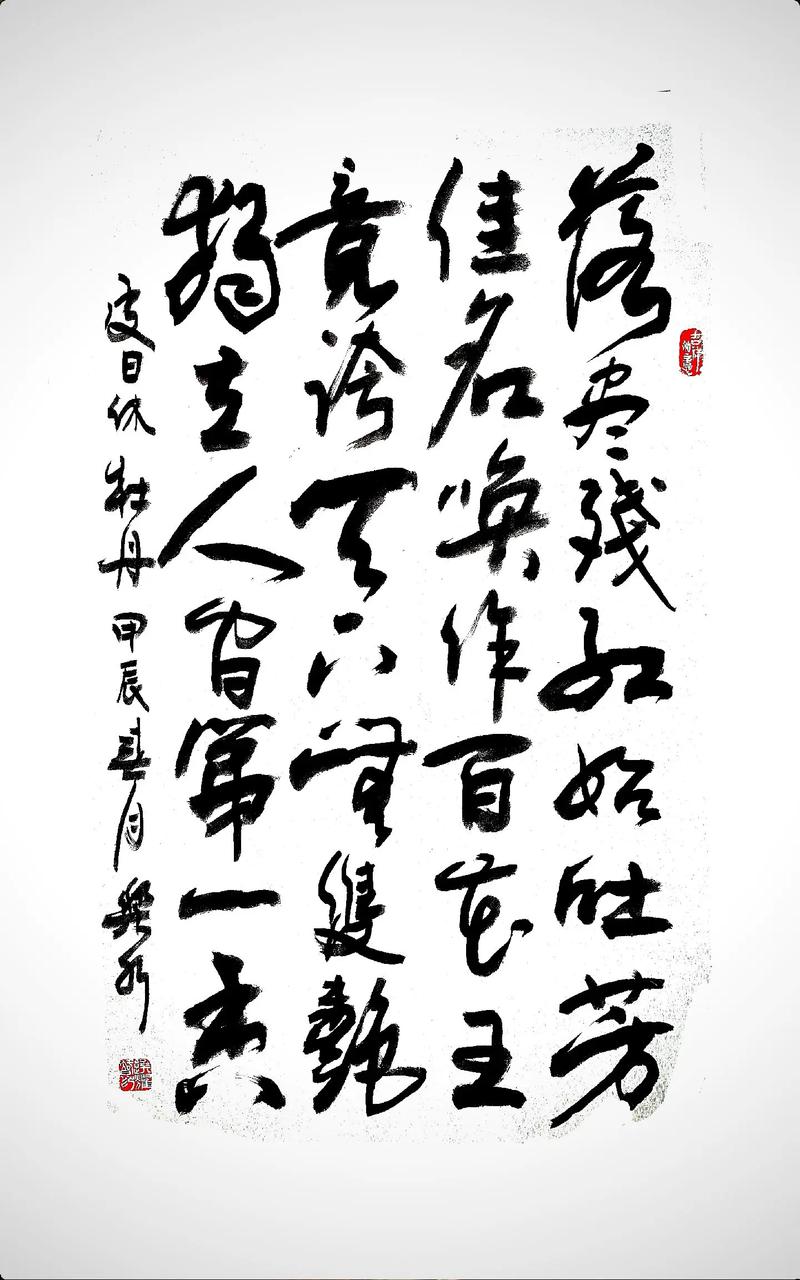 落尽残红始吐芳
佳名唤作百花王
竞誇天下無雙艷
獨立人间第一香
皮日休 牡丹 甲辰春月